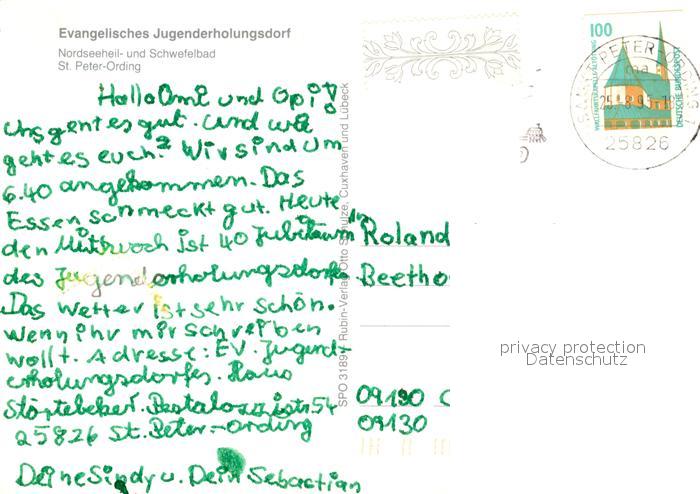 Evangelisches Jugenderholungsdorf
Nordseeheil- und Schwefelbad
St. Peter-Ording
Hallo Omi und Opi!
Uns geht es gut. Und wie
geht es euch? Wir sind um
6.40 angekommen. Das
Essen schmeckt gut. Heute
den Mittwoch ist 40 Jubiläum
des Jugenderholungsdorfs
Das Wetter ist sehr schön.
Wenn ihr mir schreiben
wollt. Adresse: EV. Jugend-
erholungsdorfes. Haus
Störtebeker. Pestalozzistr. 54
25826 St. Peter-Ording
Deine Sindy u. Dein Sebastian
SPO 3189 Rubin-Verlag Otto Schulze, Cuxhaven und Lübeck
100
DEUTSCHE BUNDESPOST
WALLFAHRTSKAPELLE ALTÖTTING
SANKT PETER-ORDING
25826
Roland
Beetho
09130
09130
privacy protection
Datenschutz